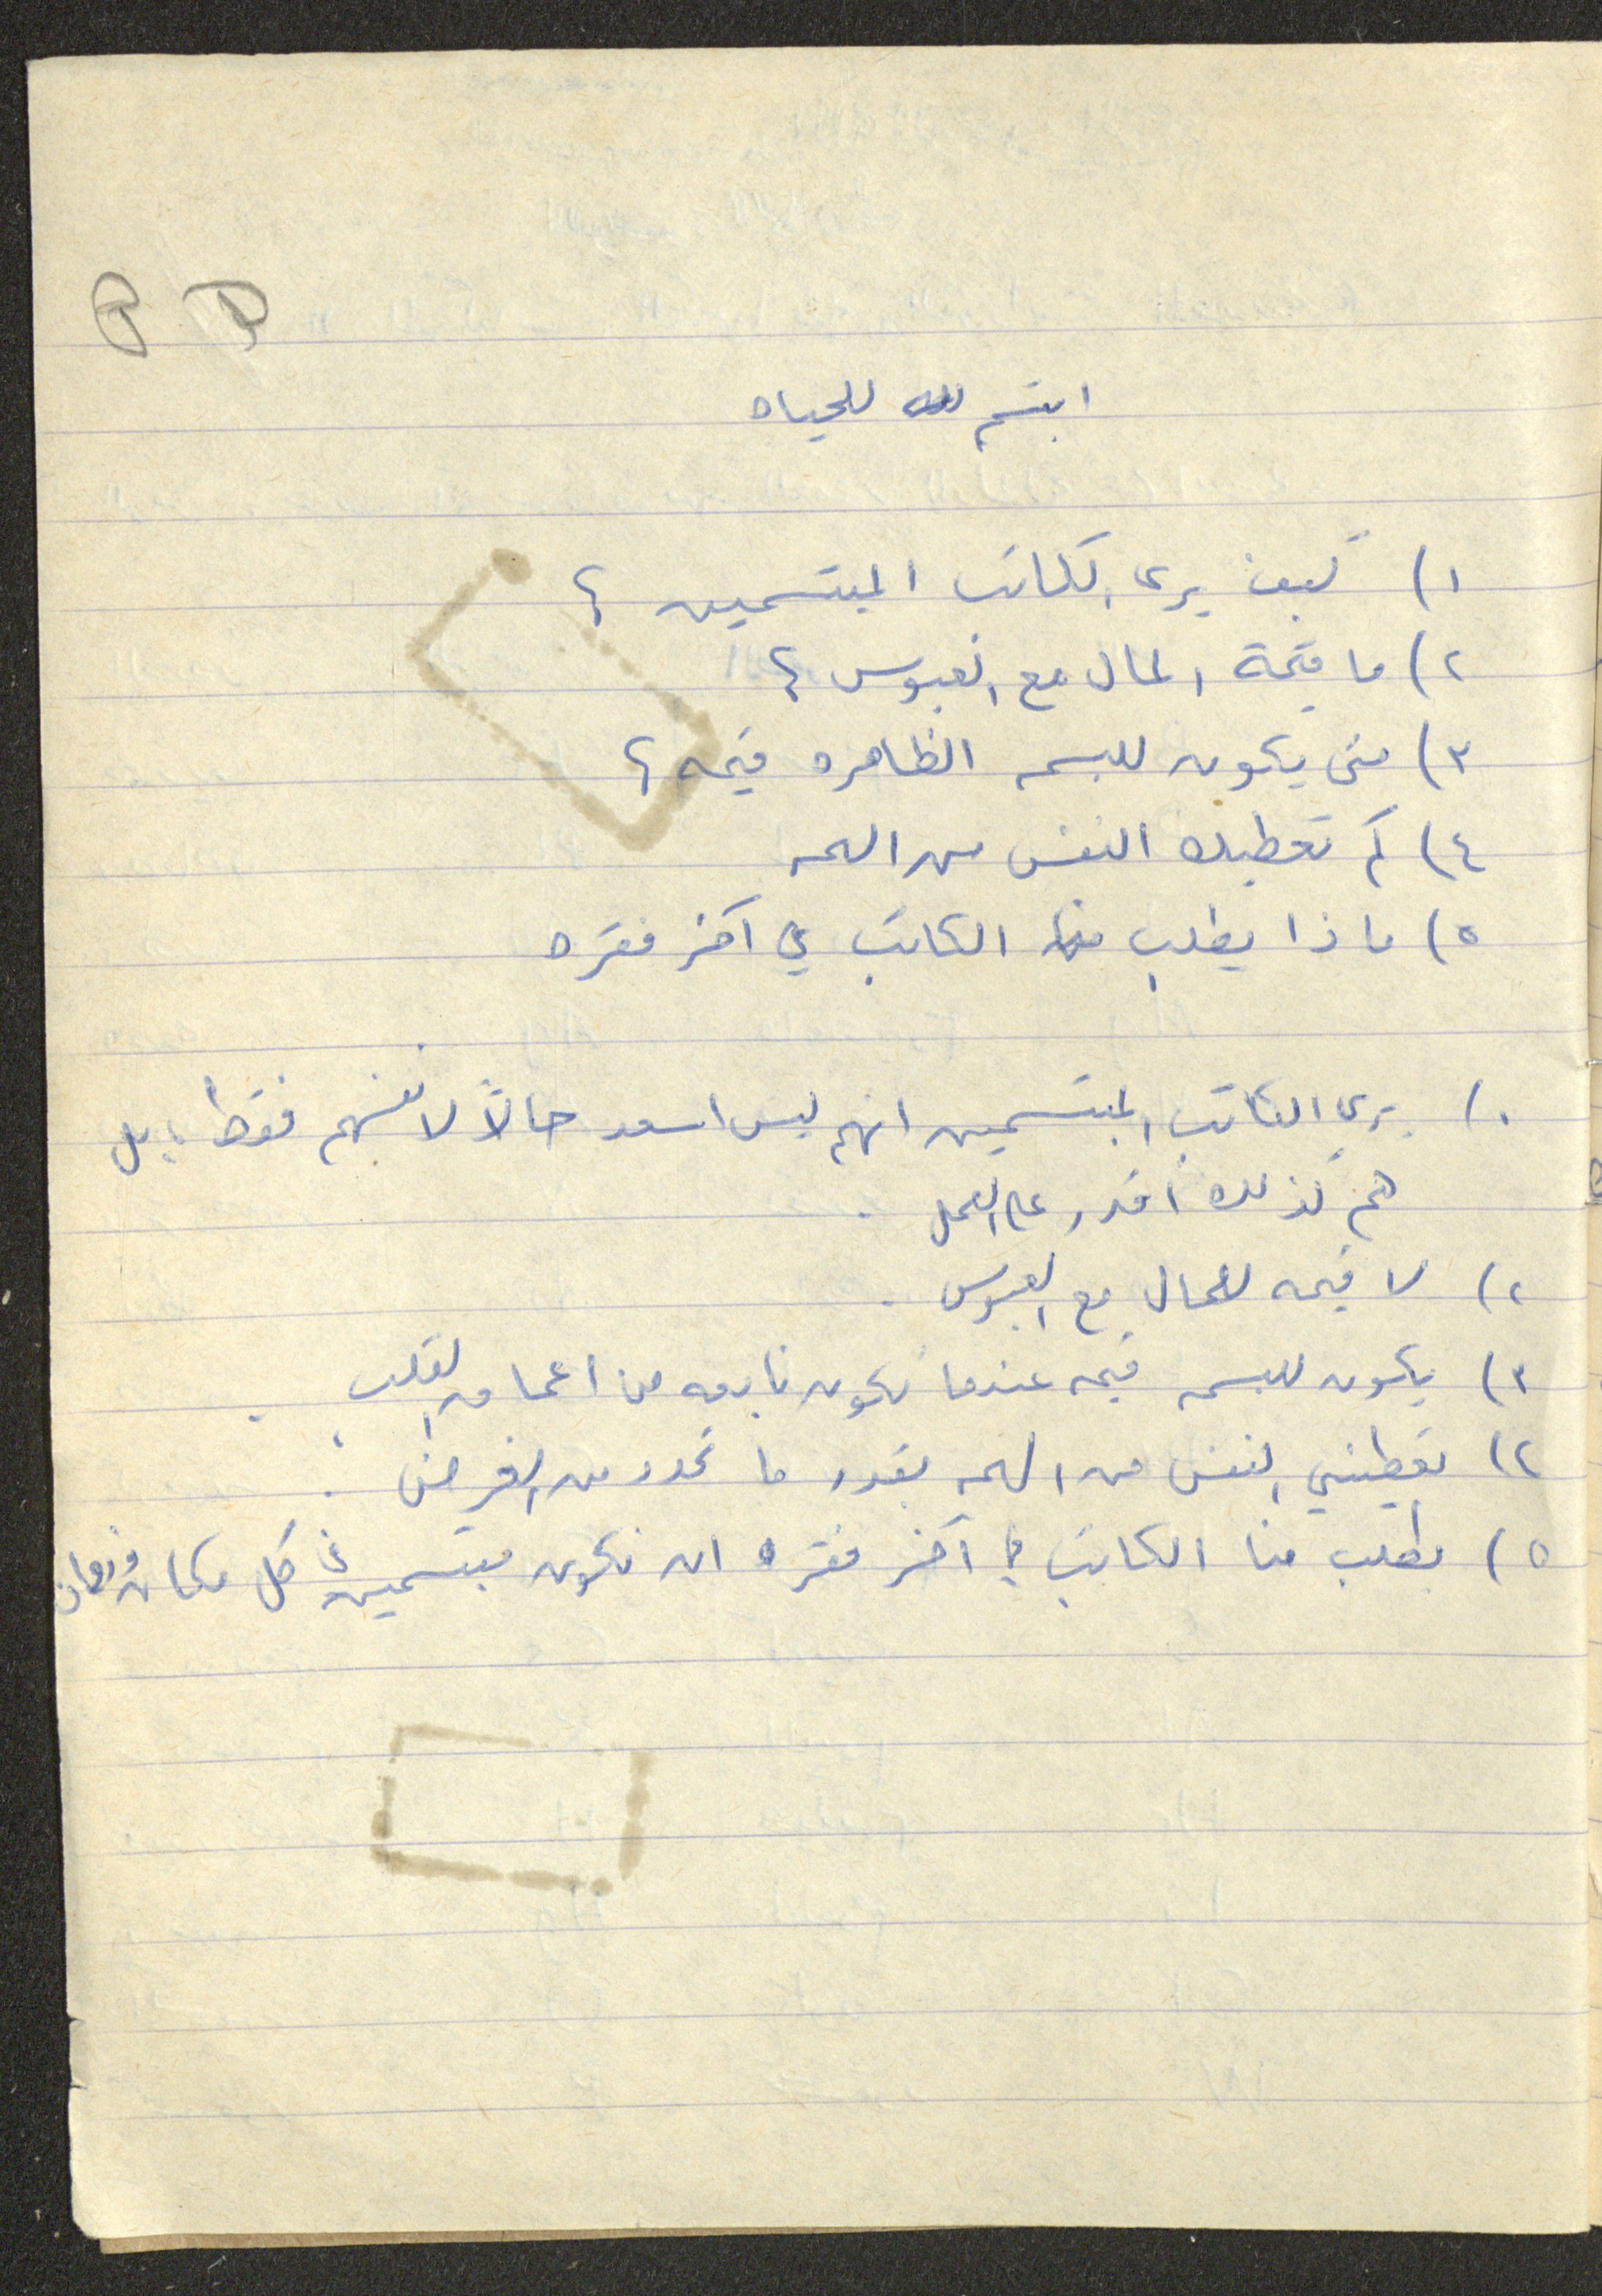 ابتسم للحياه
١) كيف يرى الكاتب المبتسمين ؟
٢) ما قيمة المال مع العبوس ؟
٣) متى يكون للبسمه الظاهره قيمه ؟
٤) كم تعطيك النفس من الهمه
٥) ماذا يطلب منا الكاتب في آخر فقره
١) يرى الكاتب المبتسمين انهم ليس اسعد حالاً لانفسهم فقط ، بل
هم كذلك أقدر على العمل .
٢) لا قيمه للمال مع العبوس .
٣) يكون للبسمه قيمه عندما تكون نابعه من اعماق القلب .
٤) تعطيني النفس من الهمه بقدر ما تحدد من الغرض .
٥) يطلب منا الكاتب في آخر فقره ان نكون مبتسمين في كل مكان وزمان